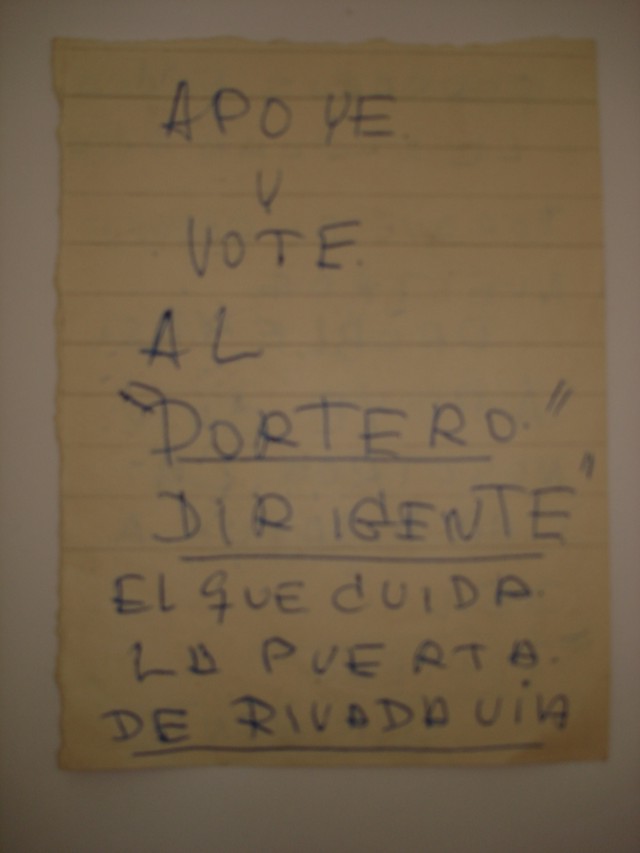 APOYE.
Y
VOTE.
AL
"PORTERO."
DIRIGENTE"
EL QUE CUIDA.
LA PUERTA.
DE RIVADAVIA